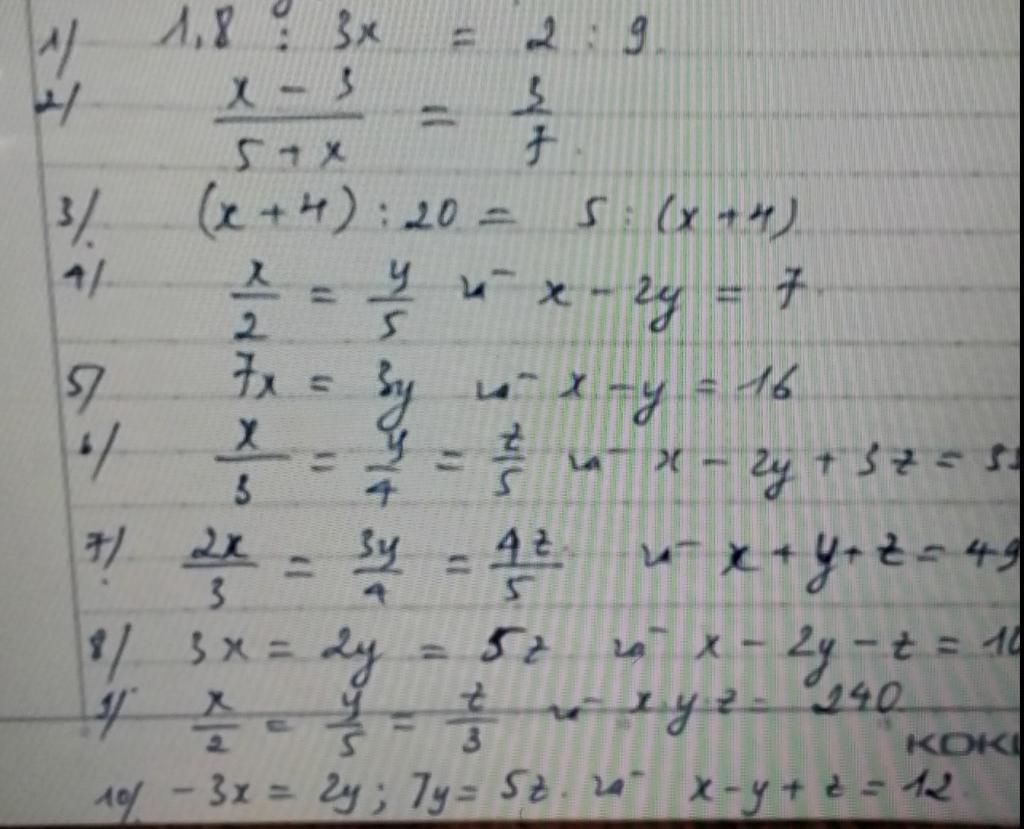 1/ 1,8 : 3x = 2 : 9.
2/ \frac{x - 3}{5 + x} = \frac{3}{7}.
3/ (x + 4) : 20 = 5 : (x + 4)
4/ \frac{x}{2} = \frac{y}{5} và x - 2y = 7.
5/ 7x = 3y và x - y = 16
6/ \frac{x}{3} = \frac{y}{4} = \frac{z}{5} và x - 2y + 3z =
7/ \frac{2x}{3} = \frac{3y}{4} = \frac{4z}{5} và x + y + z = 49
8/ 3x = 2y = 5z và x - 2y - z = 10
9/ \frac{x}{2} = \frac{y}{5} = \frac{z}{3} và x y z = 240
10/ -3x = 2y; 7y = 5z. và x - y + z = 12.